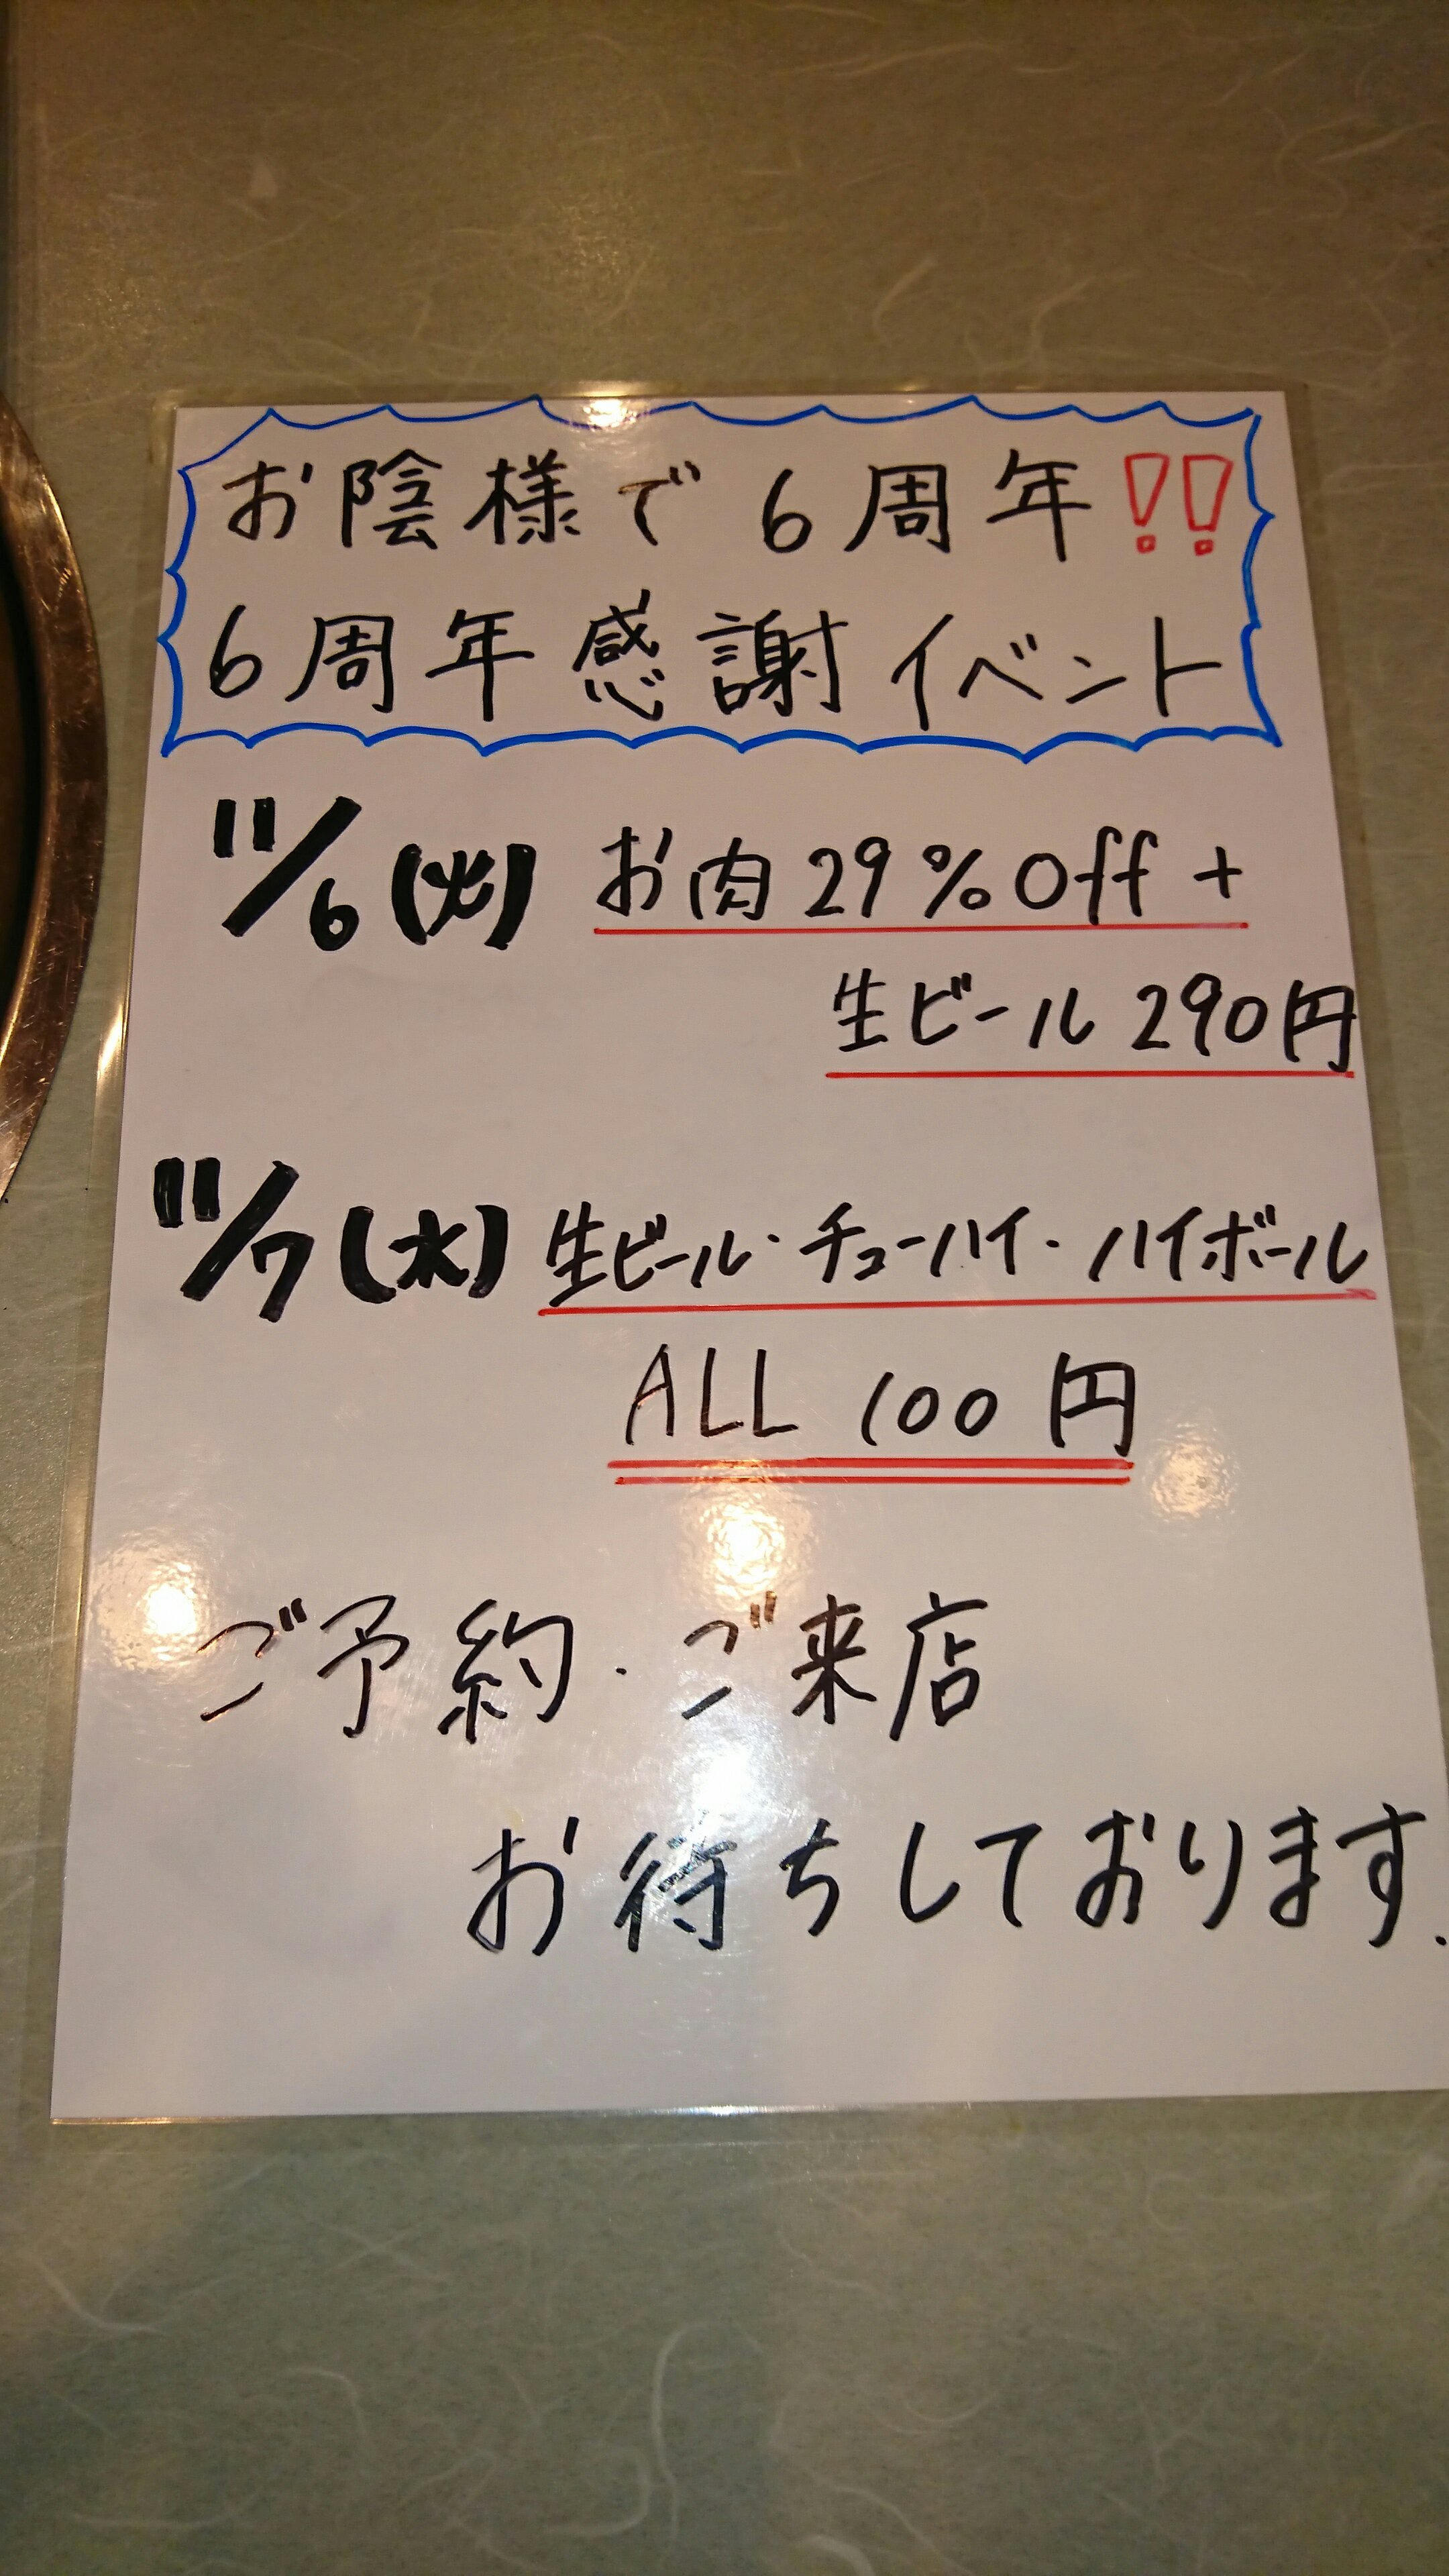 お陰様で 6周年!!
6周年感謝イベント
11/6(火) お肉29%Off+
生ビール290円
11/7(水) 生ビール・チューハイ・ハイボール
ALL 100円
ご予約・ご来店
お待ちしております.